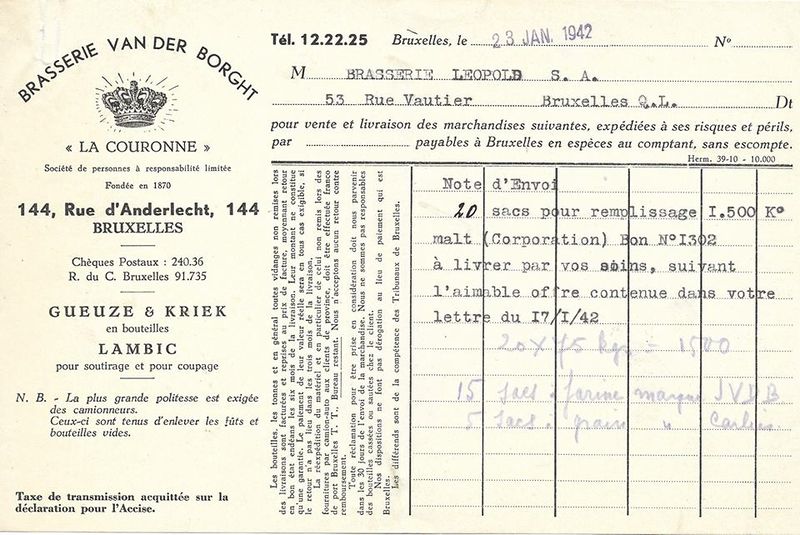 BRASSERIE VAN DER BORGHT
« LA COURONNE »
Société de personnes à responsabilité limitée
Fondée en 1870
144, Rue d'Anderlecht, 144
BRUXELLES
Chèques Postaux : 240.36
R. du C. Bruxelles 91.735
GUEUZE & KRIEK
en bouteilles
LAMBIC
pour soutirage et pour coupage
N. B. - La plus grande politesse est exigée
des camionneurs.
Ceux-ci sont tenus d'enlever les fûts et
bouteilles vides.
Taxe de transmission acquittée sur la
déclaration pour l'Accise.
Tél. 12.22.25 Bruxelles, le 23 JAN. 1942 N°
M BRASSERIE LEOPOLD S. A.
53 Rue Vautier Bruxelles Q.L. Dt
pour vente et livraison des marchandises suivantes, expédiées à ses risques et périls,
par payables à Bruxelles en espèces au comptant, sans escompte.
Herm. 39-10 - 10.000
Les bouteilles, les tonnes et en général toutes vidanges non remises lors
des livraisons sont facturées et reprises au prix de facture, moyennant retour
en bon état endéans les six mois de la livraison. Leur montant ne constitue
qu'une garantie. Le paiement de leur valeur réelle sera en tous cas exigible, si
le retour n'a pas lieu dans les trois mois de la livraison.
La réexpédition du matériel et en particulier de celui non remis lors des
fournitures par camion-auto aux clients de province, doit être effectuée franco
de port Bruxelles T. T., Bureau restant. Nous n'acceptons aucun retour contre
remboursement.
Toute réclamation pour être prise en considération doit nous parvenir
dans les 30 jours de l'envoi de la marchandise. Nous ne sommes pas responsables
des bouteilles cassées ou sautées chez le client.
Nos dispositions ne font pas dérogation au lieu de paiement qui est
Bruxelles.
Les différends sont de la compétence des Tribunaux de Bruxelles.
Note d'Envoi
20 sacs pour remplissage I.500 K°
malt (Corporation) Bon N°I302
à livrer par vos soins, suivant
l'aimable offre contenue dans votre
lettre du I7/I/42
20 x 75 kgs = 1500
15 sacs farine marque JVDB
5 sacs grain "